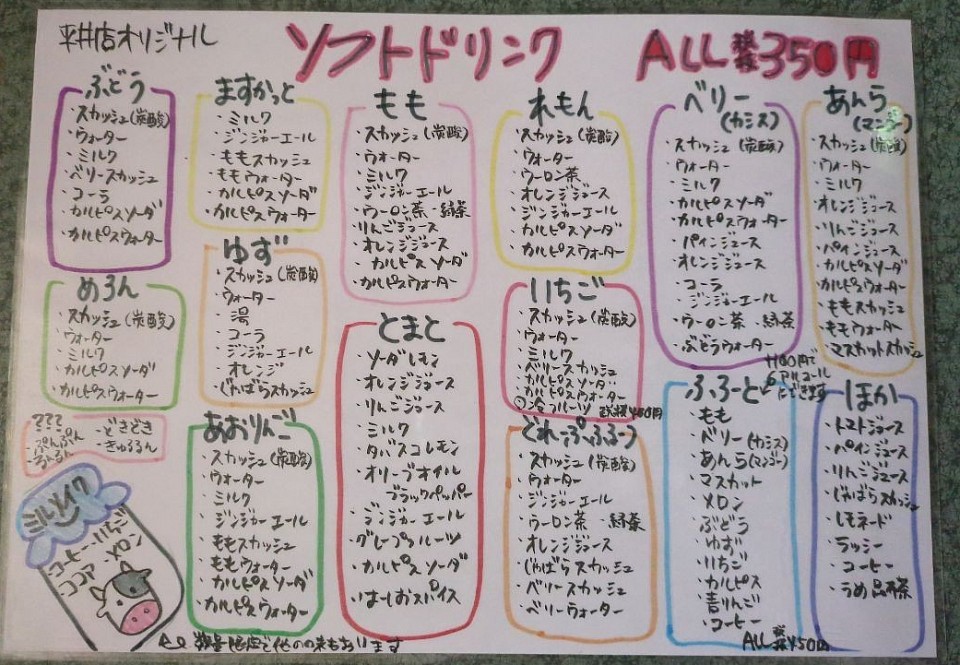 平井店オリジナル
ソフトドリンク
ALL 税抜350円
ぶどう
・スカッシュ(炭酸)
・ウォーター
・ミルク
・ベリースカッシュ
・コーラ
・カルピスソーダ
・カルピスウォーター
ますかっと
・ミルク
・ジンジャーエール
・ももスカッシュ
・ももウォーター
・カルピスソーダ
・カルピスウォーター
もも
・スカッシュ(炭酸)
・ウォーター
・ミルク
・ジンジャーエール
・ウーロン茶・緑茶
・りんごジュース
・オレンジジュース
・カルピスソーダ
・カルピスウォーター
れもん
・スカッシュ(炭酸)
・ウォーター
・ウーロン茶
・オレンジジュース
・ジンジャーエール
・カルピスソーダ
・カルピスウォーター
ベリー
(カシス)
・スカッシュ(炭酸)
・ウォーター
・ミルク
・カルピスソーダ
・カルピスウォーター
・パインジュース
・オレンジジュース
・コーラ
・ジンジャーエール
・ウーロン茶・緑茶
・ぶどうウォーター
あんら
(マンゴー)
・スカッシュ(炭酸)
・ウォーター
・ミルク
・オレンジジュース
・りんごジュース
・パインジュース
・カルピスソーダ
・カルピスウォーター
・ももスカッシュ
・ももウォーター
・マスカットスカッシュ
めろん
・スカッシュ(炭酸)
・ウォーター
・ミルク
・カルピスソーダ
・カルピスウォーター
ゆず
・スカッシュ(炭酸)
・ウォーター
・湯
・コーラ
・ジンジャーエール
・オレンジ
・じゃばらスカッシュ
とまと
・ソーダレモン
・オレンジジュース
・りんごジュース
・ミルク
・タバスコレモン
・オリーブオイル
ブラックペッパー
・ジンジャーエール
・グレープフルーツ
・カルピスソーダ
・いきしおスパイス
いちご
・スカッシュ(炭酸)
・ウォーター
・ミルク
・ベリースカッシュ
・カルピスソーダ
・カルピスウォーター
冷フルーツ 税抜450円
???
・ぷんぷん
・るんるん
・どきどき
・きゅるるん
あおりんご
・スカッシュ(炭酸)
・ウォーター
・ミルク
・ジンジャーエール
・ももスカッシュ
・ももウォーター
・カルピスソーダ
・カルピスウォーター
ぐれーぷふるーつ
・スカッシュ(炭酸)
・ウォーター
・ジンジャーエール
・ウーロン茶・緑茶
・オレンジジュース
・じゃばらスカッシュ
・ベリースカッシュ
・ベリーウォーター
ふろーと
+100円で
アルコール
にできます
・もも
・ベリー(カシス)
・あんら(マンゴー)
・マスカット
・メロン
・ぶどう
・ゆず
・いちご
・カルピス
・青りんご
・コーヒー
ALL 税抜450円
ほか
・トマトジュース
・パインジュース
・りんごジュース
・じゃばらスカッシュ
・レモネード
・ラッシー
・コーヒー
・うめ昆布茶
ミルセイク
・コーヒー・いちご
・ココア・メロン
数量限定で他の味もあります